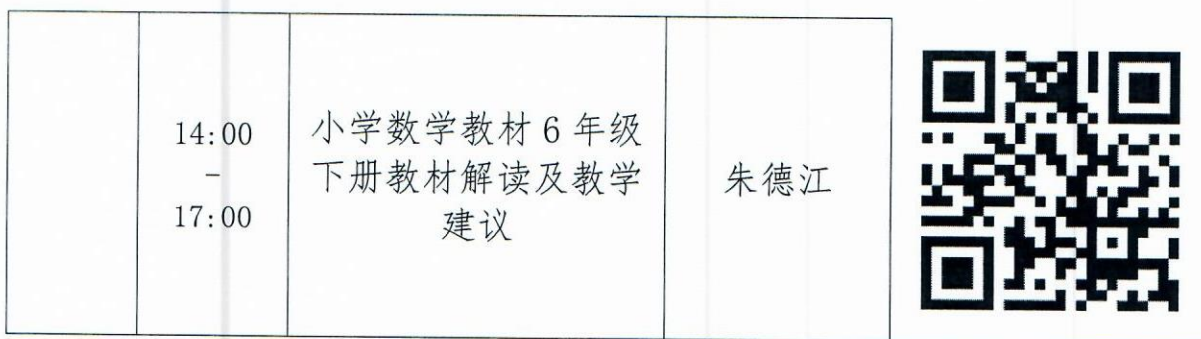 14:00
-
17:00
小学数学教材6年级
下册教材解读及教学
建议
朱德江